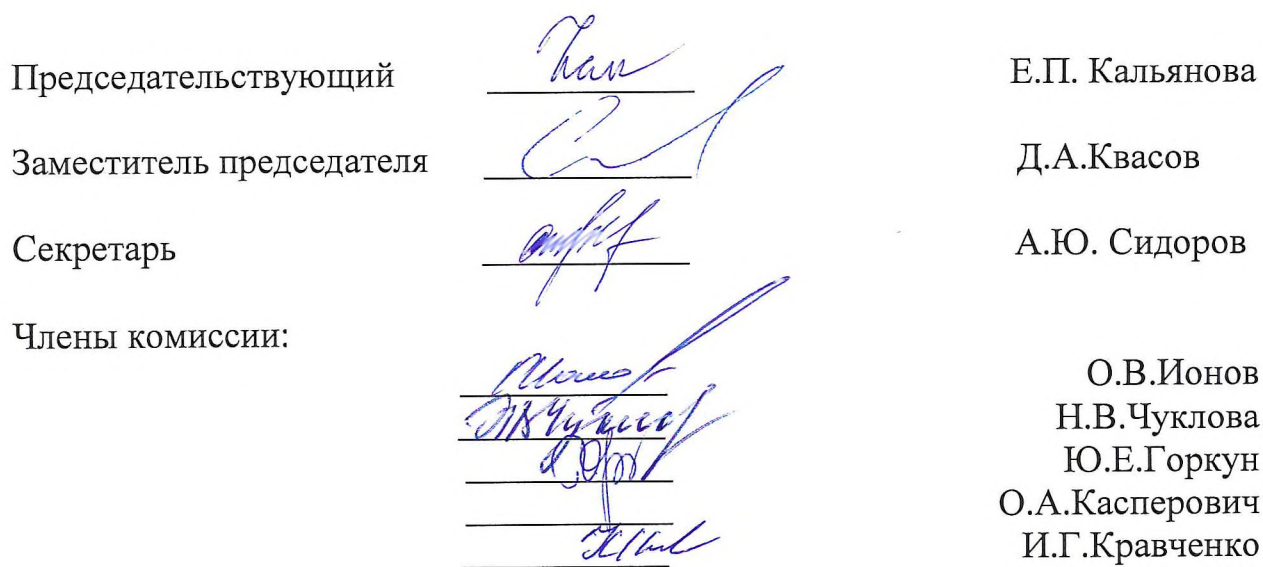 Председательствующий Е.П. Кальянова
Заместитель председателя Д.А.Квасов
Секретарь А.Ю. Сидоров
Члены комиссии:
О.В.Ионов
Н.В.Чуклова
Ю.Е.Горкун
О.А.Касперович
И.Г.Кравченко